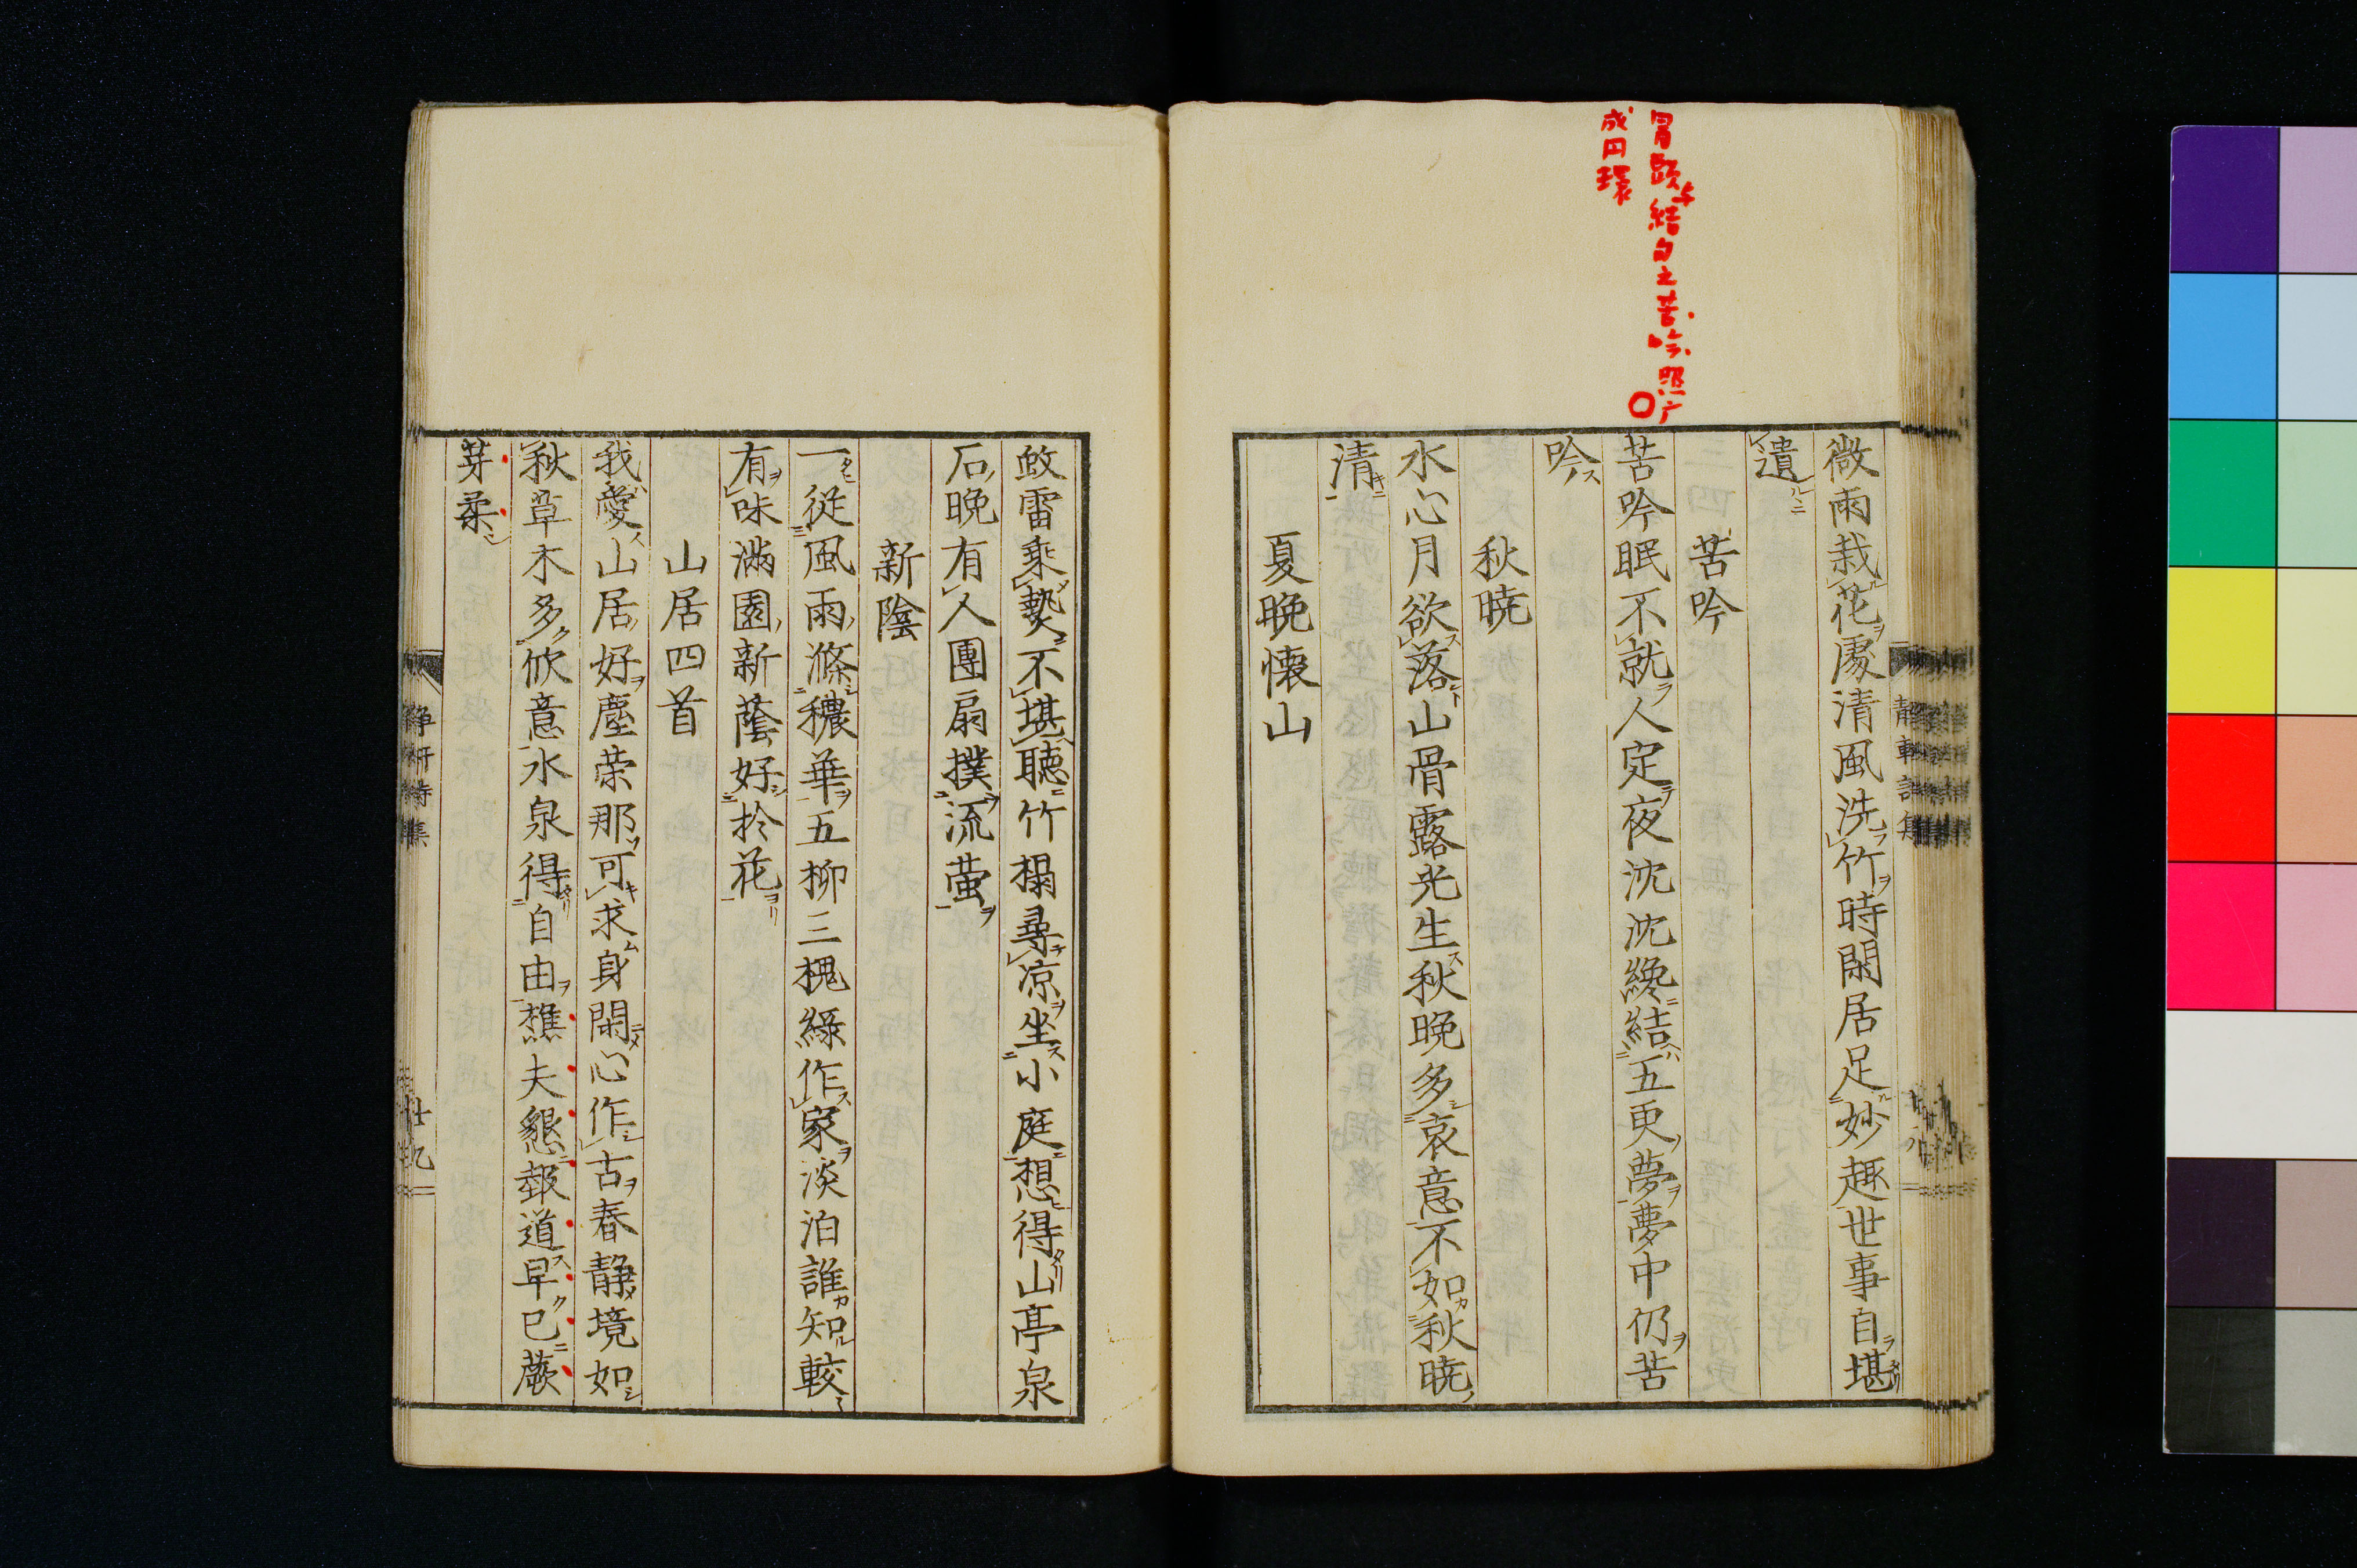 冒頭与結句之苦吟照応
成円環
微雨栽花処清風洗竹時閑居足妙趣世事自堪
遺
苦吟
苦吟眠不就人定夜沈沈纔結五更夢夢中仍苦
吟
秋暁
水心月欲落山骨露光生秋晩多哀意不如秋暁
清
夏晩懐山
蚊雷乗勢不堪聴竹榻尋凉坐小庭想得山亭泉
石晩有人團扇撲流萤
新陰
一従風雨滌穠華五柳三槐緑作家淡泊誰知較
有味満園新蔭好於花
山居四首
我愛山居好塵荣那可求身閑心作古春静境如
秋草木多佽意水泉得自由樵夫懇報道早已蕨
芽柔
静軒詩集
廿九